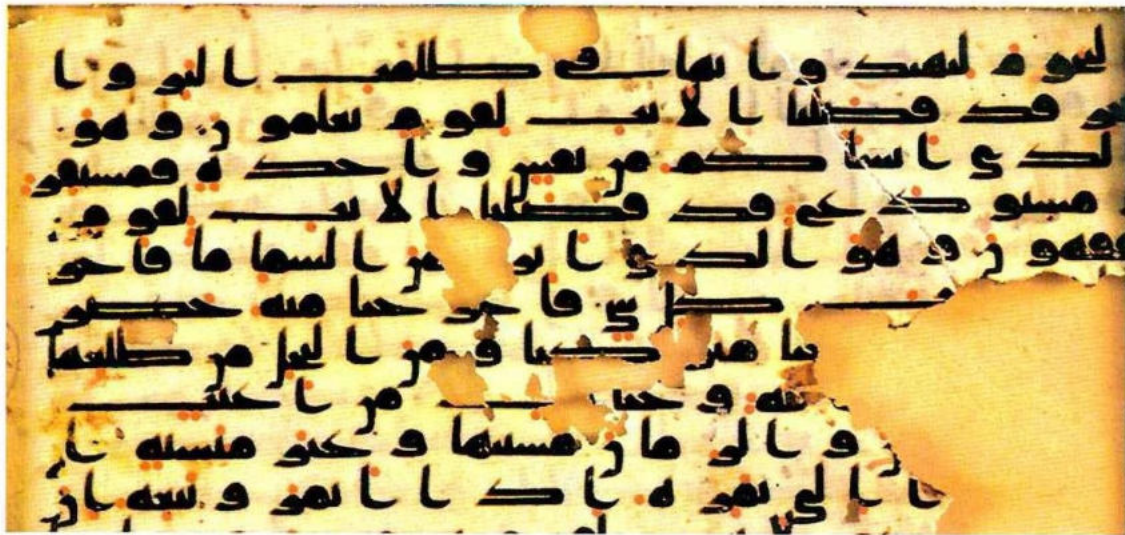 لنجوم لتهتدوا بها في ظلمت البر وا
لبحر قد فصلنا الايت لقوم يعلمون وهو
لذي انشاكم من نفس واحدة فمستقر
و مستودع قد فصلنا الايت لقوم
يفقهون وهو الذي انزل من السما ما فاخر
كل شي فاخرجنا منه خضر
حبا متركبا ومن النخل من طلعها
نية وجنت من اعنب
ن والرمان مشتبها وغير متشبه ان
ا الى ثمره اذا اثمر وينعه ان